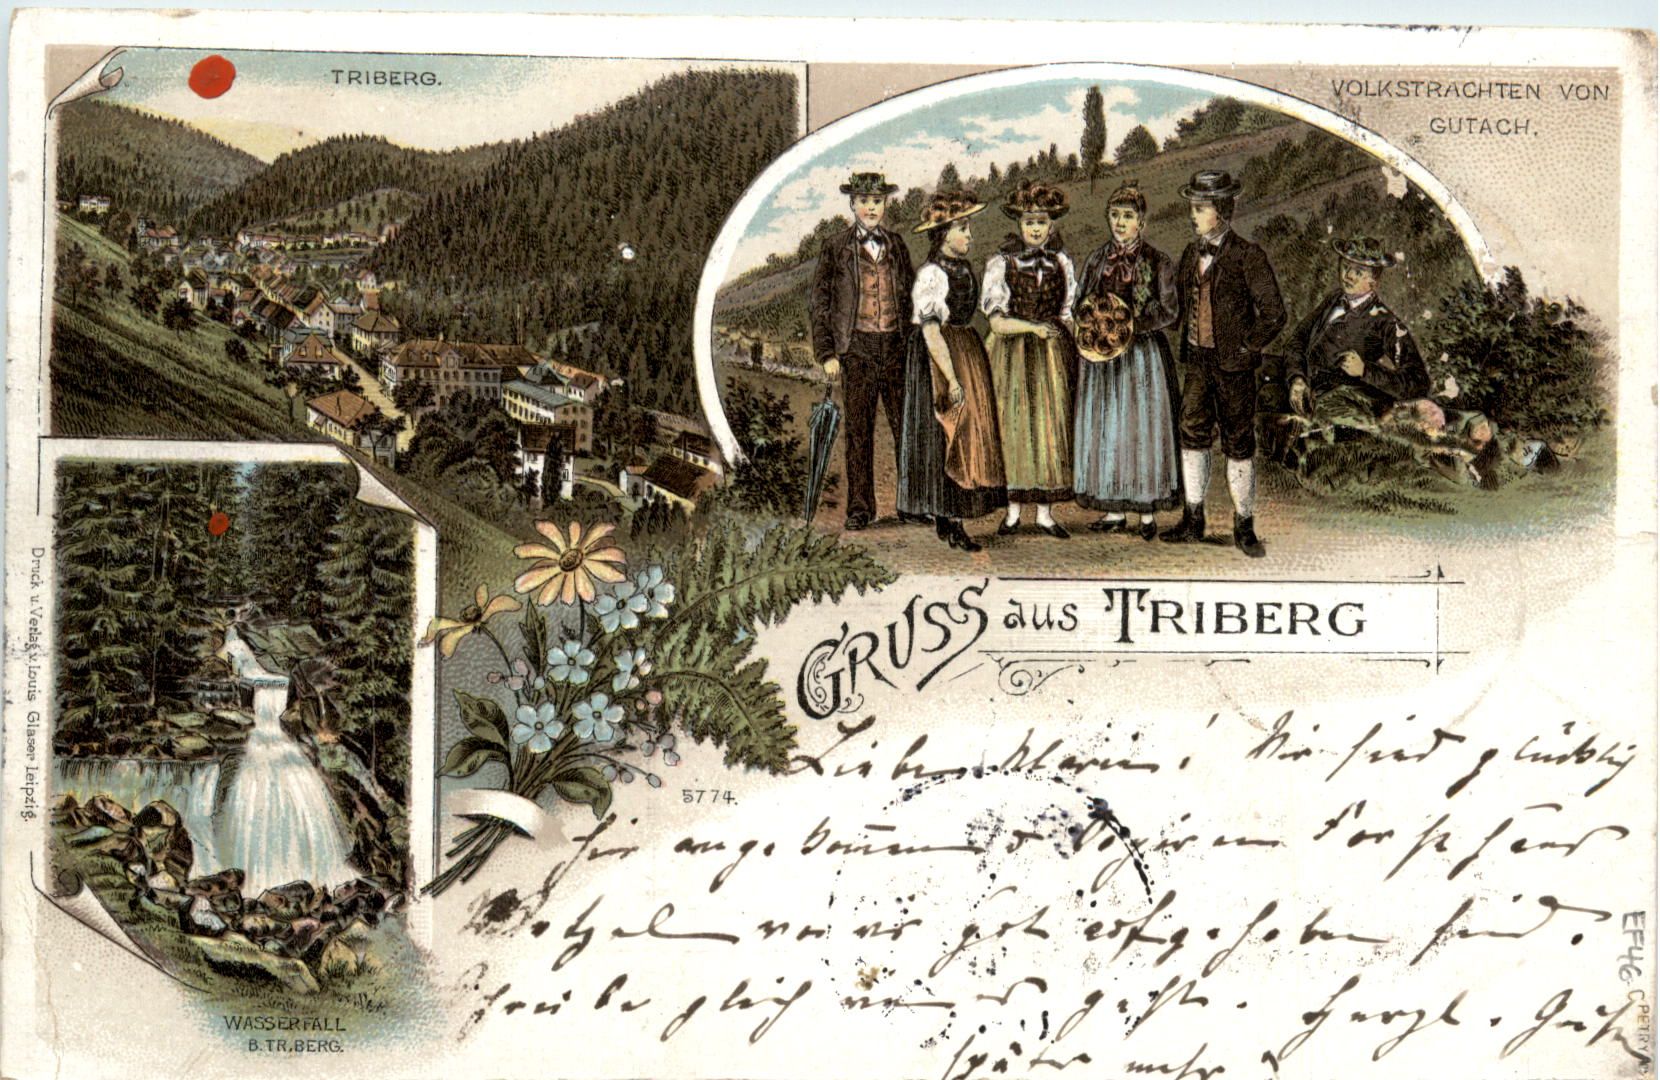 TRIBERG.
VOLKSTRACHTEN VON
GUTACH.
GRUSS aus TRIBERG
Liebe Marie! Wir sind glücklich
hier angekommen u logiren im Forsthaus
wo wir gut aufgehoben sind.
Schreibe gleich wie es geht. Herzl. Grüße
später mehr
5774.
WASSERFALL
B. TRIBERG.
Druck u. Verlag v. Louis Glaser Leipzig.
EF46